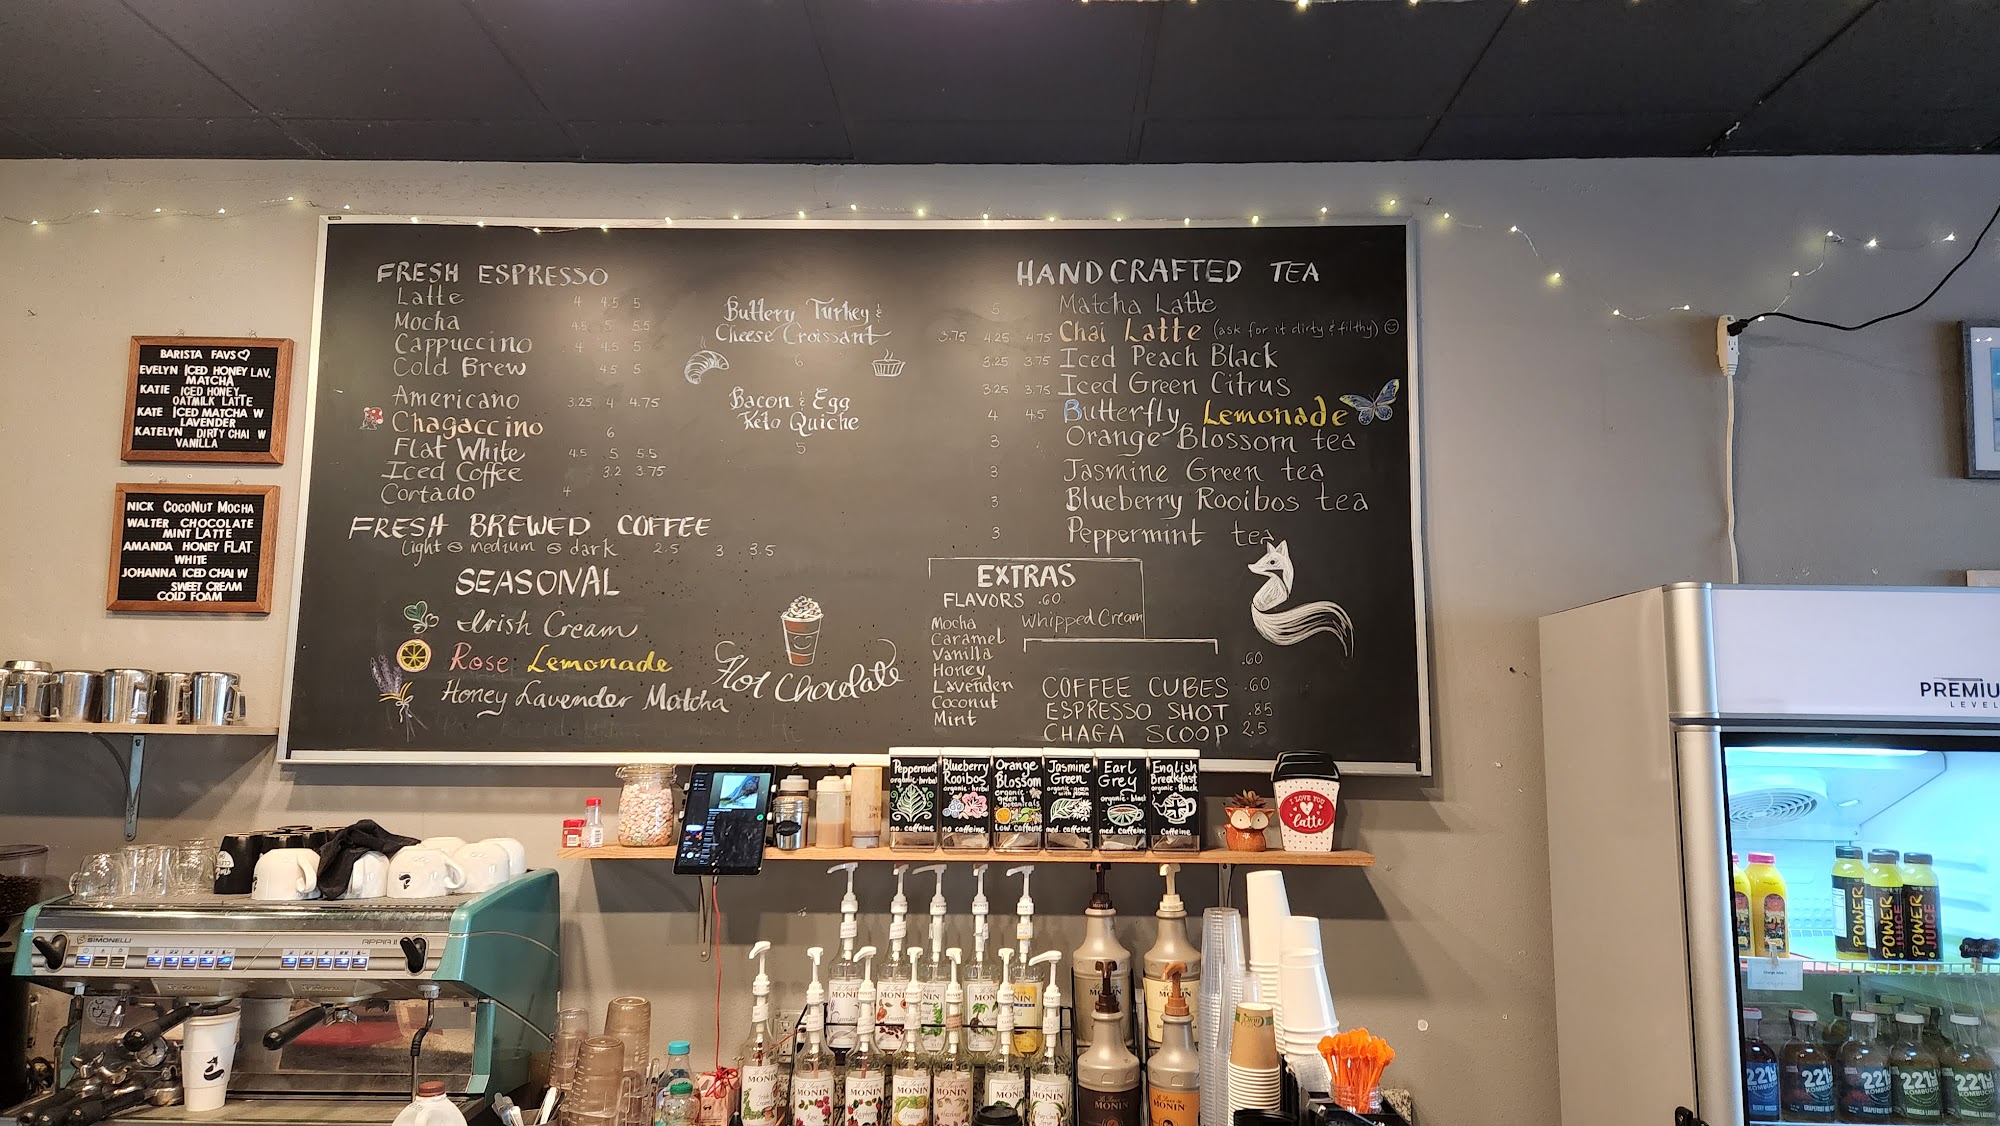 BARISTA FAVS
EVELYN ICED HONEY LAV.
MATCHA
KATIE ICED HONEY
OATMILK LATTE
KATE ICED MATCHA W
LAVENDER
KATELYN DIRTY CHAI W
VANILLA
NICK COCONUT MOCHA
WALTER CHOCOLATE
MINT LATTE
AMANDA HONEY FLAT
WHITE
JOHANNA ICED CHAI W
SWEET CREAM
COLD FOAM
FRESH ESPRESSO
Latte 4 4.5 5
Mocha 4.5 5 5.5
Cappuccino 4 4.5 5
Cold Brew 4.5 5
Americano 3.25 4 4.75
Chagaccino 6
Flat White 4.5 5 5.5
Iced Coffee 3.2 3.75
Cortado 4
FRESH BREWED COFFEE
light medium dark 2.5 3 3.5
SEASONAL
Irish Cream
Rose Lemonade
Honey Lavender Matcha
Buttery Turkey &
Cheese Croissant
6
Bacon & Egg
Keto Quiche
5
Hot Chocolate
HANDCRAFTED TEA
5 Matcha Latte
3.75 4.25 4.75 Chai Latte (ask for it dirty & filthy)
3.25 3.75 Iced Peach Black
3.25 3.75 Iced Green Citrus
4 4.5 Butterfly Lemonade
3 Orange Blossom tea
3 Jasmine Green tea
3 Blueberry Rooibos tea
3 Peppermint tea
EXTRAS
FLAVORS .60
Mocha
Caramel
Vanilla
Honey
Lavender
Coconut
Mint
Whipped Cream
.60
COFFEE CUBES .60
ESPRESSO SHOT .85
CHAGA SCOOP 2.5
Peppermint
organic herbal
no caffeine
Blueberry
Rooibos
organic herbal
no caffeine
Orange
Blossom
organic
green &
botanicals
Low caffeine
Jasmine
Green
organic green
with jasmine
med. caffeine
Earl
Grey
organic black
med. caffeine
English
Breakfast
organic Black
Caffeine
I LOVE YOU
a
latte
SIMONELLI
APPIA II
MONIN
MONIN
MONIN
MONIN
MONIN
MONIN
MONIN
MONIN
MONIN
MONIN
MONIN
PREMIU
LEVEL
POWER
JUICE
POWER
JUICE
POWER
JUICE
221
KOMBUCHA
221
KOMBUCHA
221
KOMBUCHA
221
KOMBUCHA